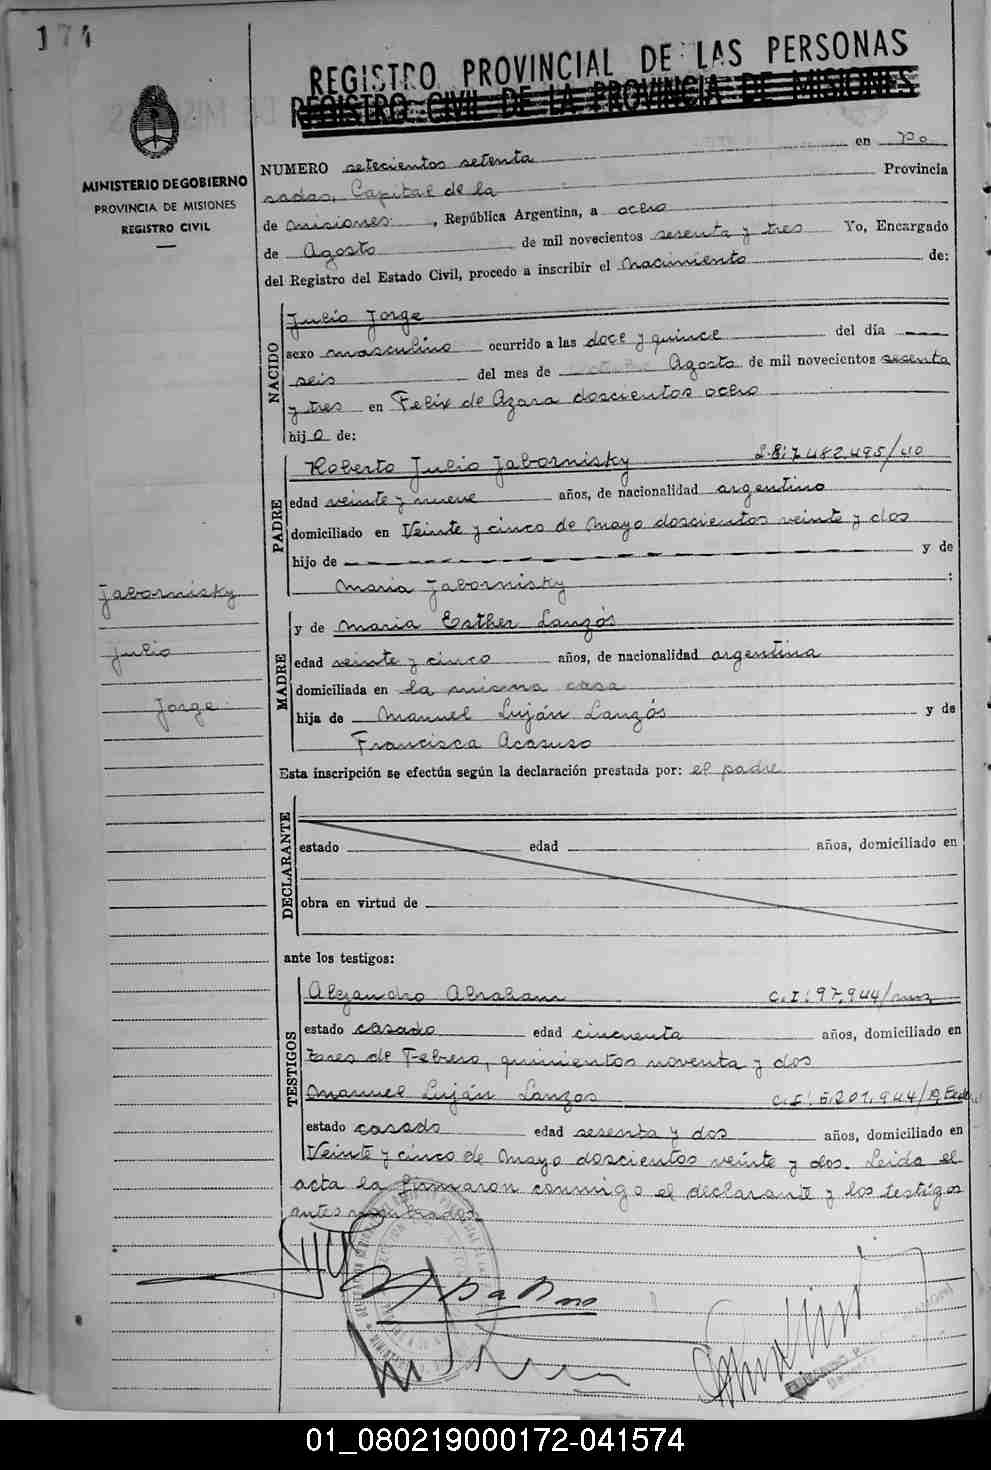 174
REGISTRO PROVINCIAL DE LAS PERSONAS
REGISTRO CIVIL DE LA PROVINCIA DE MISIONES
MINISTERIO DE GOBIERNO
PROVINCIA DE MISIONES
REGISTRO CIVIL
NUMERO setecientos setenta en Po
sadas, Capital de la Provincia
de Misiones, República Argentina, a ocho
de Agosto de mil novecientos sesenta y tres Yo, Encargado
del Registro del Estado Civil, procedo a inscribir el Nacimiento de:
NACIDO
Julio Jorge
sexo masculino ocurrido a las doce y quince del día
seis del mes de Agosto de mil novecientos sesenta
y tres en Felix de Azara doscientos ocho
hijo de:
PADRE
Roberto Julio Jabornisky L.E: 7.482.495/40
edad veinte y nueve años, de nacionalidad argentino
domiciliado en Veinte y cinco de Mayo doscientos veinte y dos
hijo de y de
Maria Jabornisky :
Jabornisky
Julio
Jorge
MADRE
y de Maria Esther Lanzós
edad veinte y cinco años, de nacionalidad argentina
domiciliada en la misma casa
hija de Manuel Luján Lanzós y de
Francisca Acasuso
Esta inscripción se efectúa según la declaración prestada por: el padre
DECLARANTE
estado edad años, domiciliado en
obra en virtud de
ante los testigos:
TESTIGOS
Alejandro Abraham C.I: 97.944/mnz
estado casado edad cincuenta años, domiciliado en
tres de Febrero, quinientos noventa y dos
Manuel Luján Lanzos C.I: 5.201.944/
estado casado edad sesenta y dos años, domiciliado en
Veinte y cinco de Mayo doscientos veinte y dos. Leida el
acta la firmaron conmigo el declarante y los testigos
antes nombrados.
01_080219000172-041574